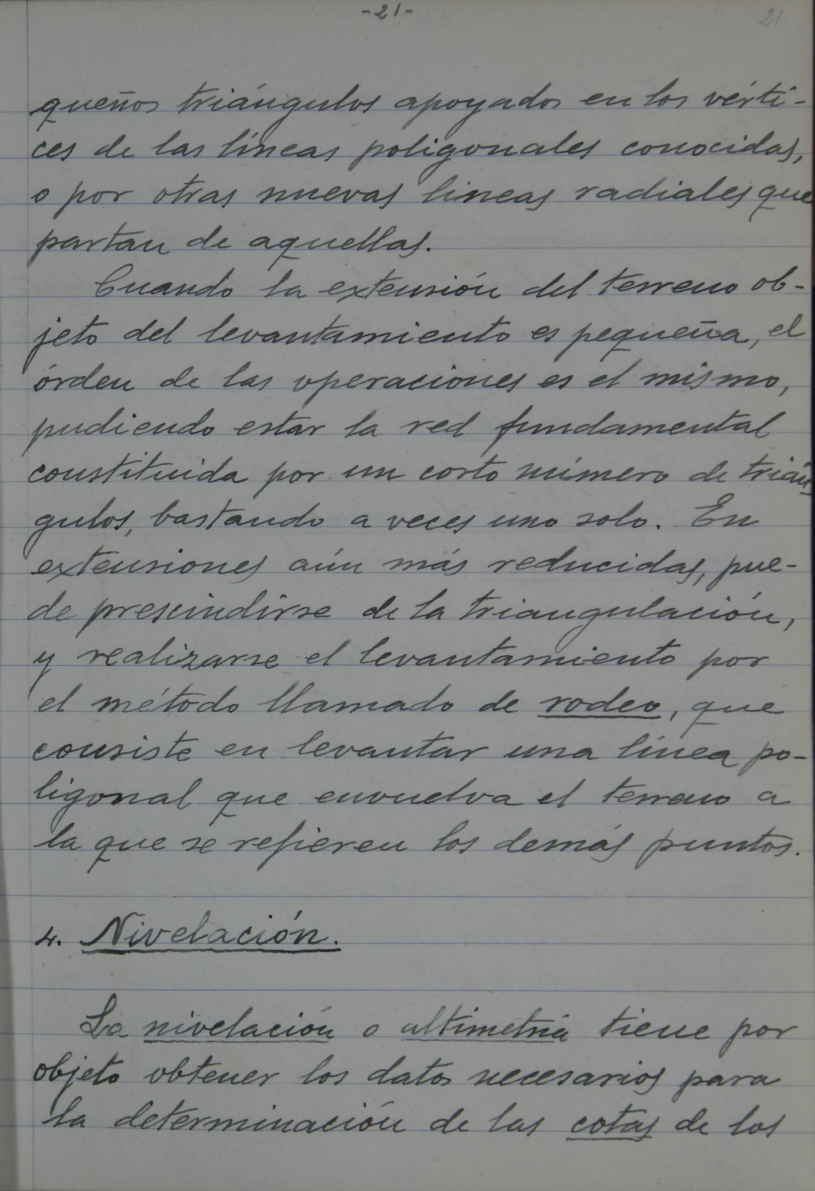 -21-
21
queños triángulos apoyados en los vérti-
ces de las líneas poligonales conocidas,
o por otras nuevas lineas radiales que
partan de aquellas.
Cuando la extensión del terreno ob-
jeto del levantamiento es pequeña, el
órden de las operaciones es el mismo,
pudiendo estar la red fundamental
constituida por un corto número de trián
gulos, bastando a veces uno solo. En
extensiones aún más reducidas, pue-
de prescindirse de la triangulación,
y realizarse el levantamiento por
el método llamado de rodeo, que
consiste en levantar una línea po-
ligonal que envuelva el terreno a
la que se refieren los demás puntos.
4. Nivelación.
La nivelación o altimetría tiene por
objeto obtener los datos necesarios para
la determinación de las cotas de los